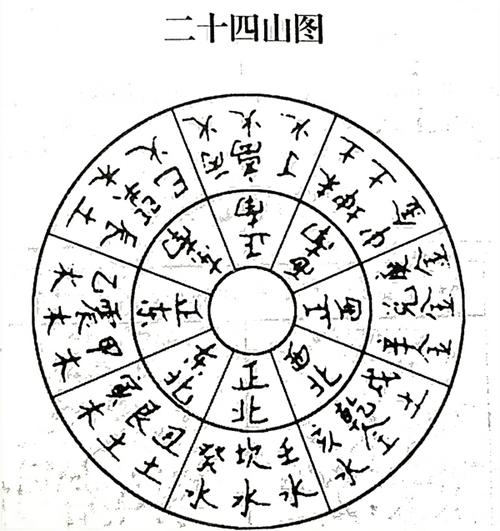 二十四山图
火 火 火
丙 离 丁
正南
土 土 金
未 坤 申
西南
金 金 金
庚 兑 辛
正西
土 金 水
戌 乾 亥
西北
癸 坎 壬
水 水 水
正北
寅 艮 丑
木 土 土
东北
乙 震 甲
木 木 木
正东
土 木 火
辰 巽 巳
东南